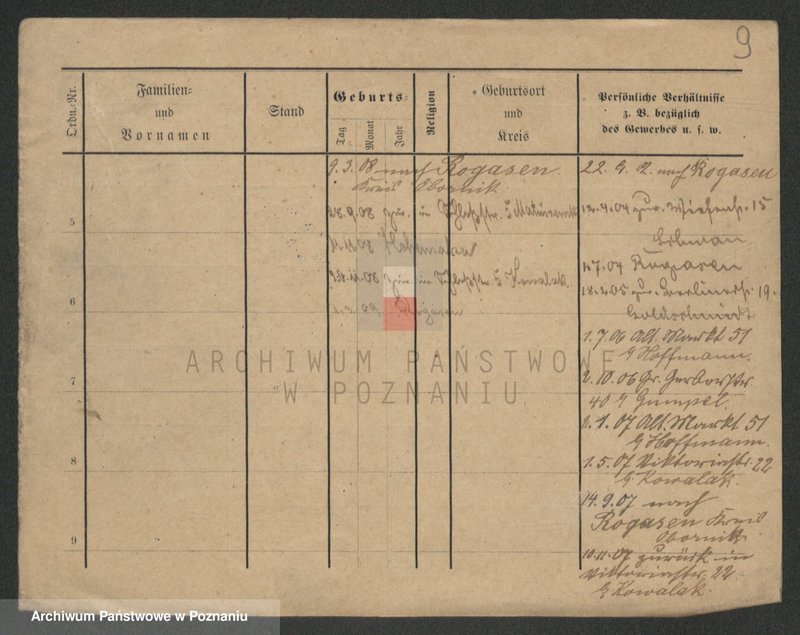 9
Ordn.-Nr.
Familien-
und
Vornamen
Stand
Geburts-
Tag
Monat
Jahr
Religion
Geburtsort
und
Kreis
Persönliche Verhältnisse
z. B. bezüglich
des Gewerbes u. s. w.
9.3.08 nach Rogasen
Kreis Obornik
28.9.08 zur. in Schloßstr. 5
1.11.08
28.11.08 zur. in Schloßstr. 5 Kowalak
1.3.09 Rogasen
5
6
7
8
9
22. 9. nach Rogasen
12.4.04 zur. Wiesenstr. 15
1.7.04 Rogasen
18.2.05 zur. Berlinerstr. 19.
Goldschmidt
1.7.06 Alt. Markt 51
b/ Hoffmann.
2.10.06 Gr. Gerberstr.
40 b/ Gumpel.
2.1.07 Alt. Markt 51
b/ Hoffmann.
1.5.07 Viktoriastr. 22
b/ Kowalak.
14.9.07 nach
Rogasen Kreis
Obornik
10.11.07 zurück in
Viktoriastr. 22
b/ Kowalak.
ARCHIWUM PAŃSTWOWE
W POZNANIU
Archiwum Państwowe w Poznaniu